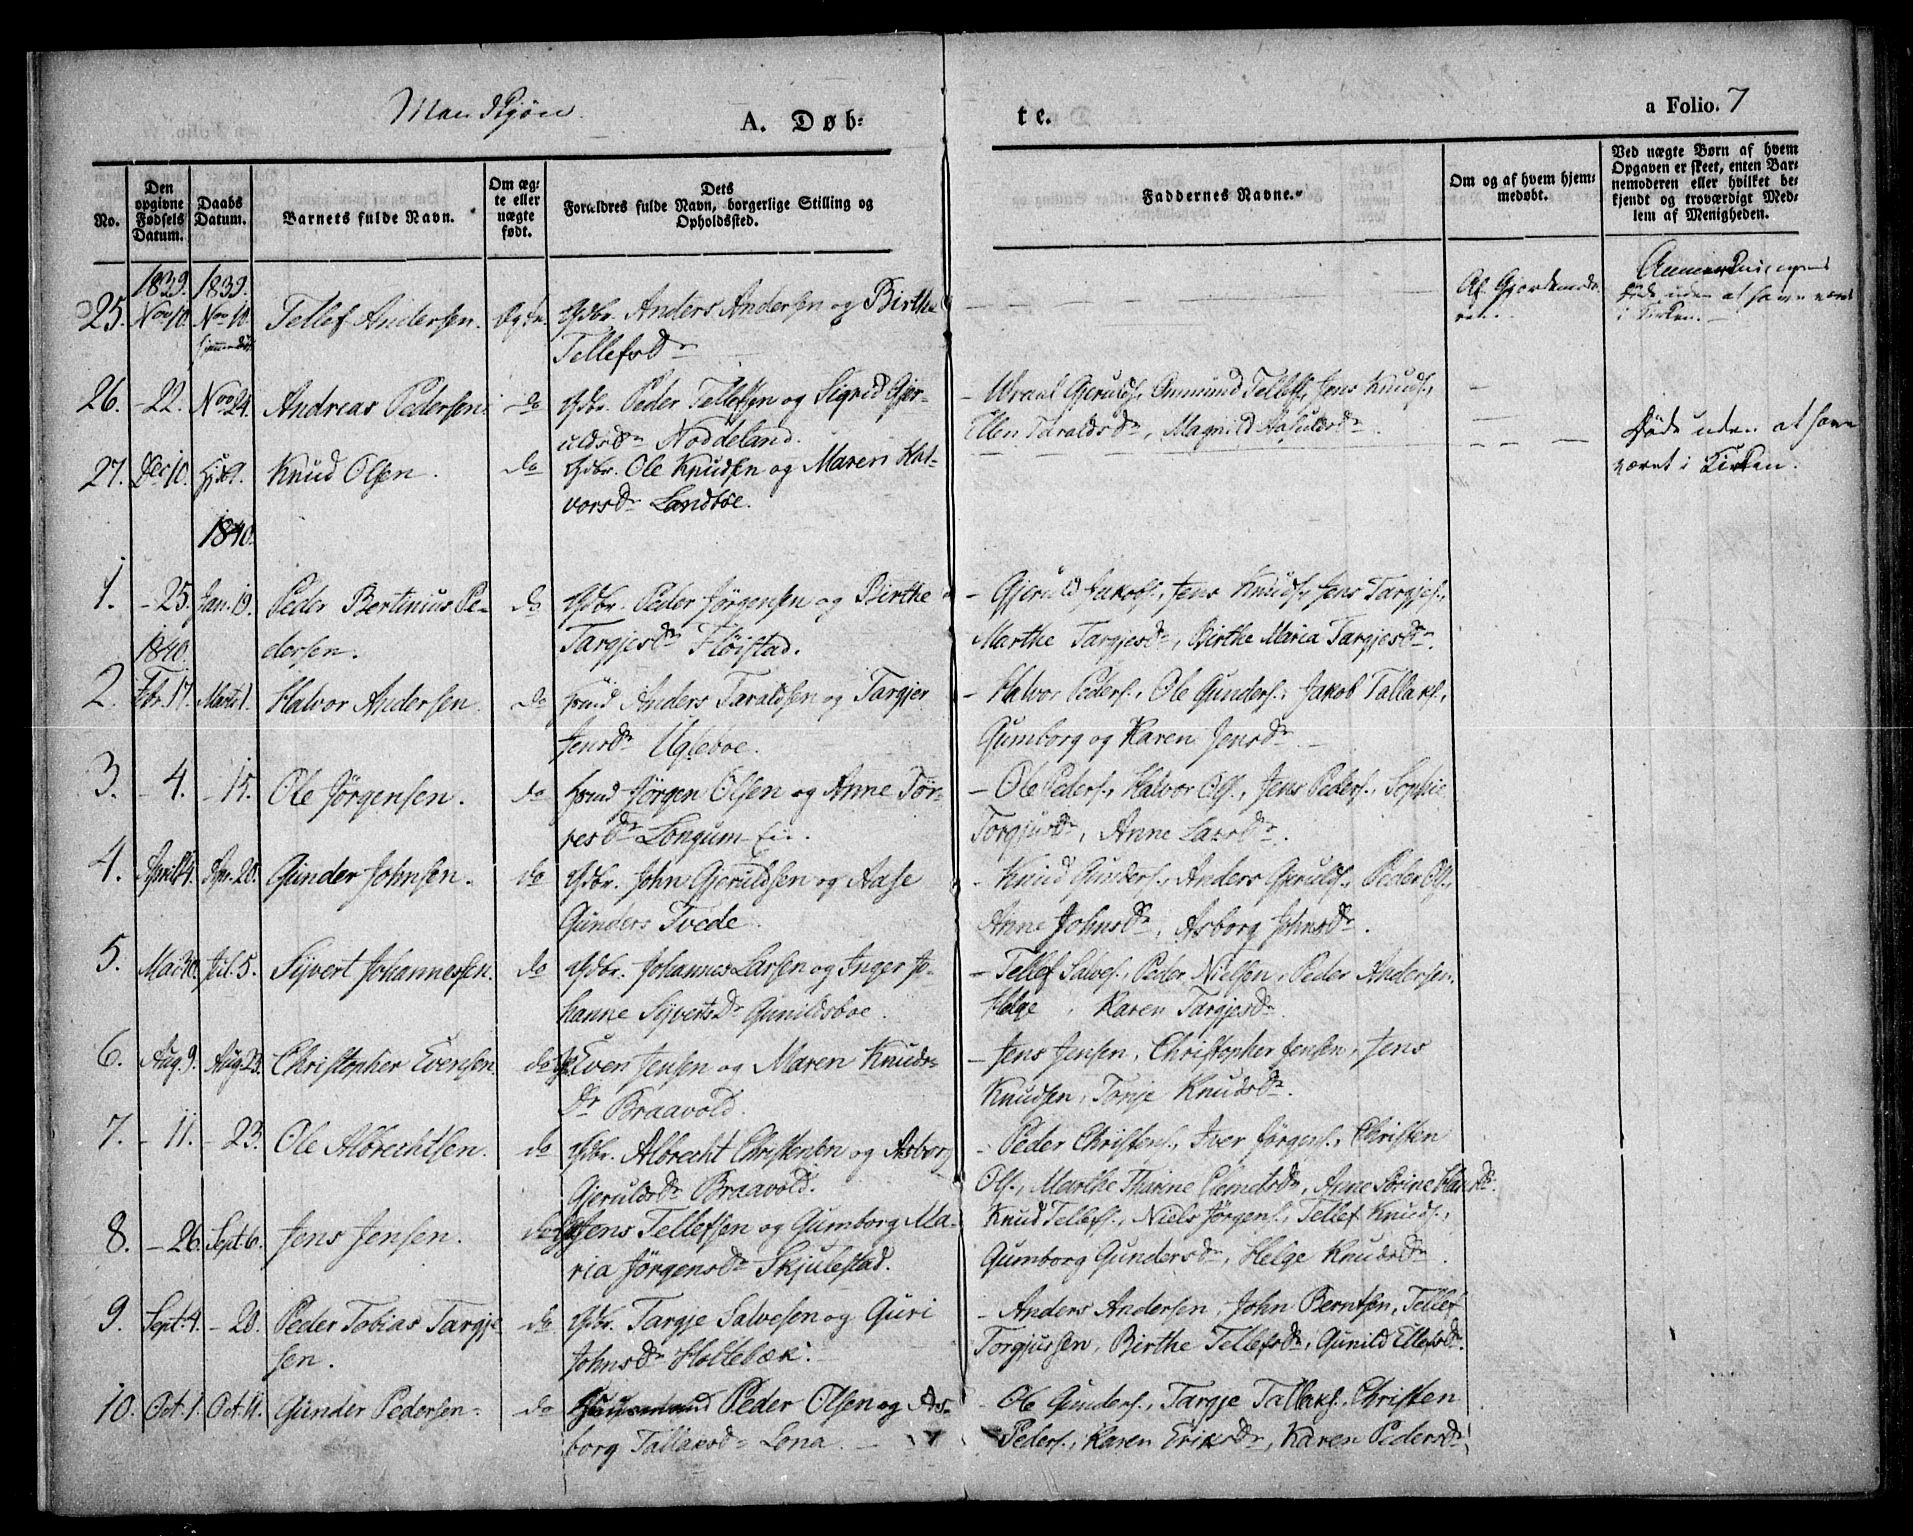 Mandkjøn
A. Døb=
te.
a Folio. 7
No.
Den opgivne Fødsels Datum.
Daabs Datum.
Barnets fulde Navn.
Om ægte eller uægte født.
Dets
Forældres fulde Navn, borgerlige Stilling og Opholdssted.
Faddernes Navne.
Om og af hvem hjemmedøbt.
Ved uægte Børn af hvem Opgaven er skeet, enten Barnemoderen eller hvilket bekjendt og troværdigt Medlem af Menigheden.
1839. 1839.
25. Nov 10. Nov 10 Tellef Andersen. Gbr. Anders Andersen og Birthe
Tellefsdr
Af Gjordemode-
ren.
Døde uden at have været
i Kirken.
26. -22. Nov 24. Andreas Pedersen. do Gbr. Peder Tellefsen og Sigrid Gjer-
uldsdr Noddeland.
- Wraal Gjerulds., Ommund Tellefs., Jens Knuds.,
Ellen Taraldsdr, Magnild Aasuldsdr
27. Dec 10. Knud Olsen. do Gbr. Ole Knudsen og Maren Hal-
vorsdr Landboe.
Døde uden at have
været i Kirken.
1840.
1. -25. Jan. 19. Peder Bertinius Pe-
dersen.
do Gbr. Peder Jörgensen og Birthe
Targjesdr Flöistad.
- Gjeruld Jakobs., Jens Knuds., Jens Targjes.,
Marthe Targjesdr, Birthe Maria Targjesdr.
1840.
2. Febr. 17. Marts 1. Halvor Andersen. do Anders Taraldsen og Targjer
Jensdr Ugleboe.
- Halvor Peders., Ole Gunders., Jakob Tallaks.,
Gumborg og Karen Jensdr
3. - 4. - 15. Ole Jörgensen. do Jörgen Olsen og Anne Tör-
resdr Longum Eie.
- Ole Peders., Halvor Ols., Jens Peders., Sophie
Torgjusdr, Anne Larsdr.
4. April 4. Apr. 20. Gunder Johnsen. do Gbr. John Gjeruldsen og Aase
Gunders Tvede.
- Knud Gunders., Anders Gjerulds., Peder Ols.,
Anne Johnsdr, Asborg Johnsdr.
5. Mai 30. Jul. 5. Syvert Johannessen. do Gbr. Johannes Larsen og Inger Jo-
hanne Syvertsdr Gunildsboe.
- Tellef Salves., Peder Nielsen, Peder Andersen.
Helge , Karen Targjesdr.
6. Aug 9. Aug. 23. Christopher Evensen. do Even Jensen og Maren Knuds-
dr Braavold.
- Jens Jensen, Christopher Jensen, Jens
Knudsen, Tonje Knudsdr.
7. - 11. - 23. Ole Albrechtsen. do Gbr. Albrecht Christensen og Asborg
Gjeruldsdr Braavold.
- Peder Christens., Iver Jörgens., Christen
Ols., Marthe Thrine Clemetsdr, Anne Sörine
8. - 26. Sept. 6. Jens Jensen. do Jens Tellefsen og Gumborg Ma-
ria Jörgensdr Skjulestad.
Knud Tellefs., Niels Jörgens., Tellef Knuds.,
Gumborg Gundersdr, Helge Knudsdr.
9. Sept. 4. - 20. Peder Tobias Targje
sen.
do Gbr. Targje Salvesen og Guri
Johnsdr Holtebæk.
- Anders Andersen, John Berntsen, Tellef
Torgjussen, Birthe Tellefsdr, Gunild Ellefsdr.
10. Oct. 1. Oct. 11. Gunder Pedersen. do Huusmand Peder Olsen og As-
borg Tallaksdr Lona.
- Ole Gunders., Targje Tallaks., Christen
Peders., Karen Eriksdr, Karen Pedersdr.